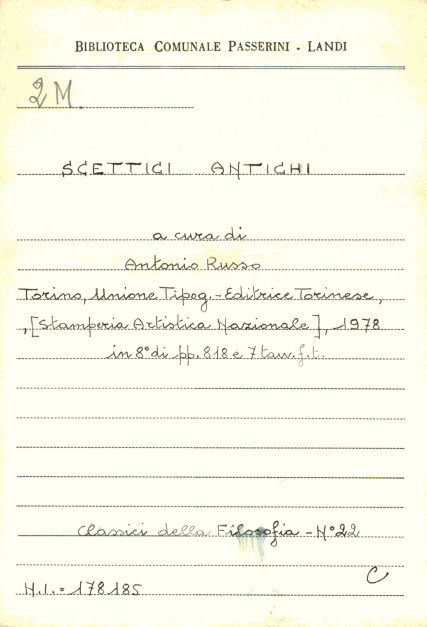 BIBLIOTECA COMUNALE PASSERINI - LANDI
2M.
SCETTICI ANTICHI
a cura di
Antonio Russo
Torino, Unione Tipog.-Editrice Torinese,
,[Stamperia Artistica Nazionale], 1978
in 8° di pp. 818 e 7 tav. f.t.
Classici della Filosofia - N° 22
C
N.I. = 178185